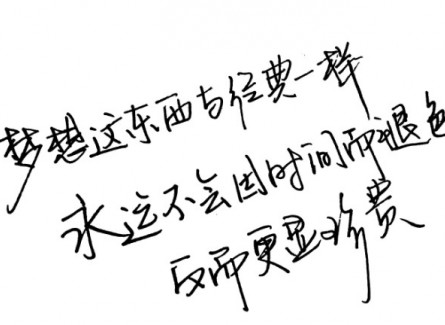 梦想这东西与经典一样
永远不会因时间而退色
反而更显珍贵